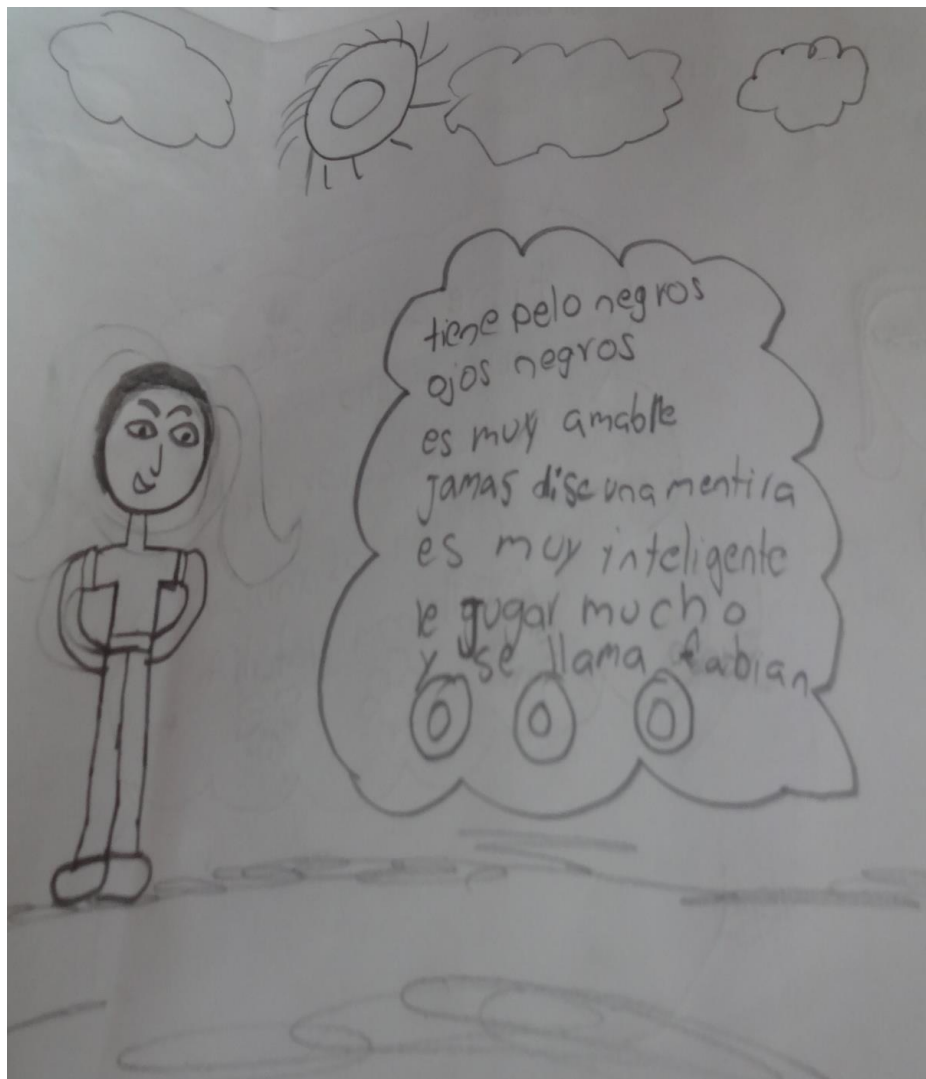 tiene pelo negros
ojos negros
es muy amable
jamas dise una mentira
es muy inteligente
le gugar mucho
y se llama fabian